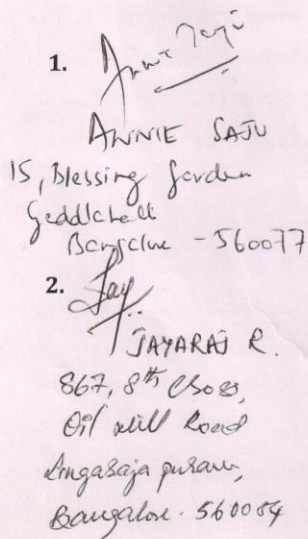 1. Annie Saju
ANNIE SAJU
15, Blessing Garden
Geddlahalli
Bangalore - 560077
2. Jay
JAYARAJ R.
867, 8th Cross,
Oil Mill Road
Lingaraja puram,
Bangalore. 560084